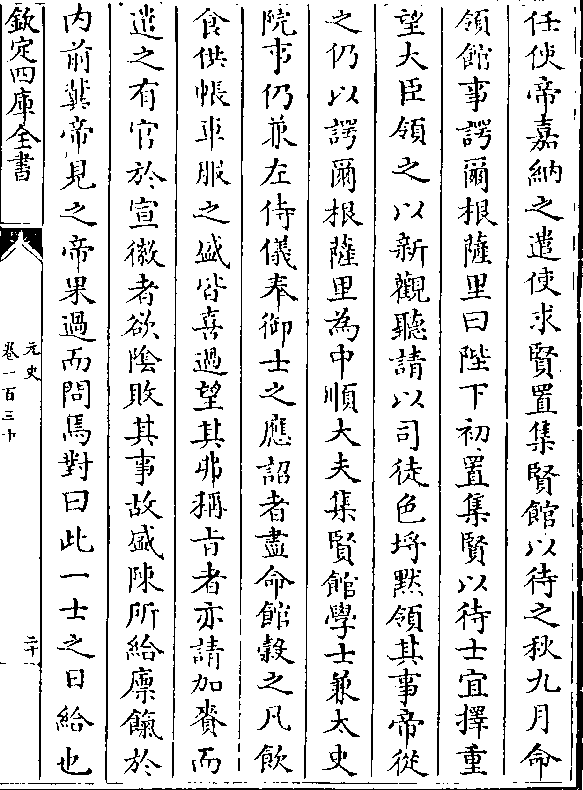 任使帝嘉納之遣使求賢置集賢館以待之秋九月命
領館事諤爾根薩里曰陛下初置集賢以待士宜擇重
望大臣領之以新觀聽請以司徒色埒默領其事帝從
之仍以諤爾根薩里為中順大夫集賢館學士兼太史
院事仍兼左侍儀奉御士之應詔者盡命館穀之凡飲
食供帳車服之盛皆喜過望其弗稱㫖者亦請加賚而
遣之有官於宣徽者欲陰敗其事故盛陳所給廪餼於
内前冀帝見之帝果過而問焉對曰此一士之日給也
欽定四庫全書
元史
卷一百三十
二十